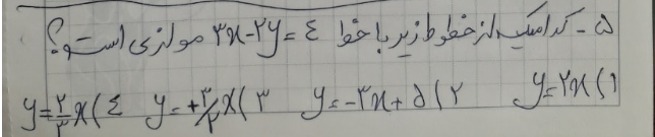 ۵ - کدامیک از خطوط زیر با خط ۳x-۲y=٤ موازی است؟
۱) y=۲x ۲) y=-۳x+۵ ۳) y=+۳/۲x ٤) y=۲/۳x